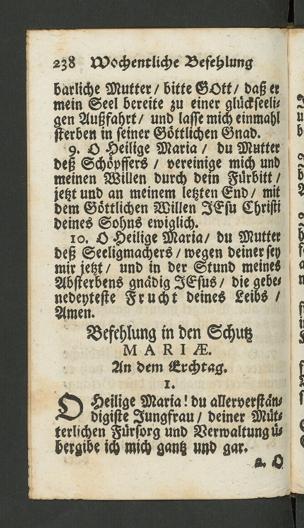 238 Wochentliche Befehlung
barliche Mutter / bitte GOtt / daß er
mein Seel bereite zu einer glückseeli-
gen Außfahrt / und lasse mich einmahl
sterben in seiner Göttlichen Gnad.
9. O Heilige Maria / du Mutter
deß Schöpffers / vereinige mich und
meinen Willen durch dein Fürbitt /
jetzt und an meinem letzten End / mit
dem Göttlichen Willen JEsu Christi
deines Sohns ewiglich.
10. O Heilige Maria / du Mutter
deß Seeligmachers / wegen deiner sey
mir jetzt / und in der Stund meines
Absterbens gnädig JEsus / die gebe-
nedeyteste Frucht deines Leibs /
Amen.
Befehlung in den Schutz
MARIÆ.
An dem Erchtag.
1.
O Heilige Maria! du allerverstän-
digiste Jungfrau / deiner Müt-
terlichen Fürsorg und Verwaltung ü-
bergibe ich mich gantz und gar.
2. O